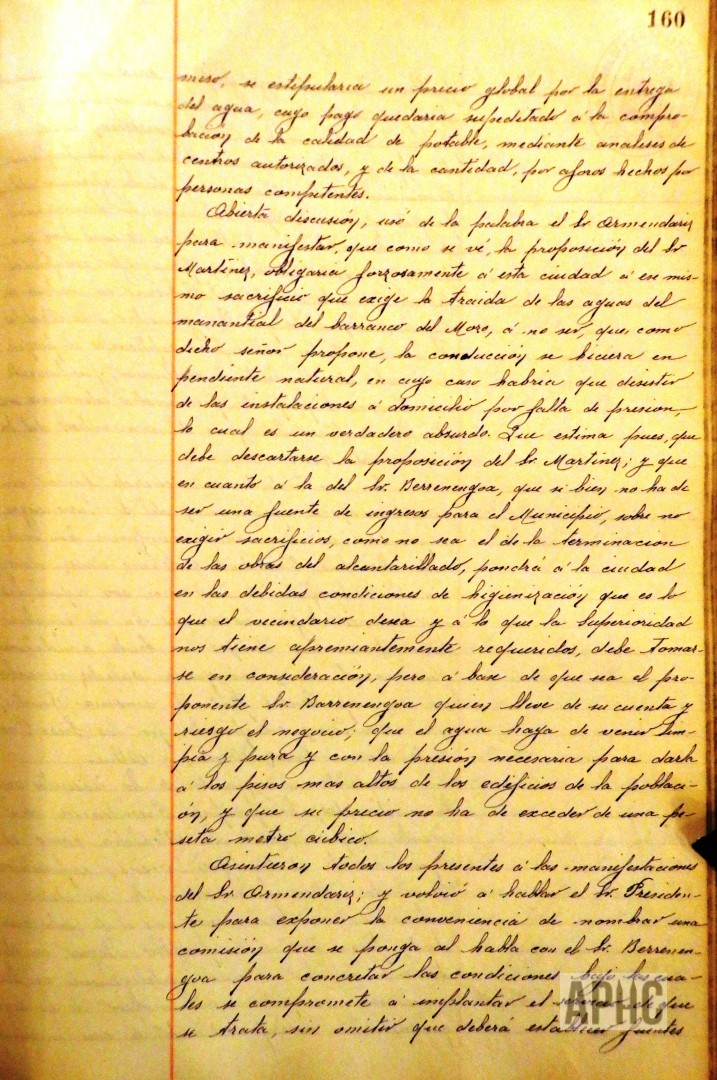 160
miso, se estipularia un precio global por la entrega
del agua, cuyo pago quedaria supeditado á la compro-
bación de la calidad de potable, mediante analisis de
centros autorizados, y de la cantidad, por aforos hechos por
personas competentes.
Abierta discusión, usó de la palabra el Sr Armendariz
para manifestar, que como se vé, la proposición del Sr
Martinez, obligaria forzosamente á esta ciudad á ese mis-
mo sacrificio que exige la traida de las aguas del
manantial del barranco del Moro, á no ser, que, como
dicho señor propone, la conducción se hiciera en
pendiente natural, en cuyo caso habria que desistir
de las instalaciones á domicilio por falta de presion,
lo cual es un verdadero absurdo. Que estima pues, que
debe descartarse la proposición del Sr. Martinez; y que
en cuanto á la del Sr. Berrenengoa, que si bien no ha de
ser una fuente de ingresos para el Municipio, sobre no
exigir sacrificios, como no sea el de la terminacion
de las obras del alcantarillado, pondrá á la ciudad
en las debidas condiciones de higienización que es lo
que el vecindario desea y á lo que la Superioridad
nos tiene apremiantemente requeridos, debe tomar-
se en consideración, pero á base de que sea el pro-
ponente Sr. Barrenengoa quien lleve de su cuenta y
riesgo el negocio; que el agua haya de venir lim-
pia y pura y con la presión necesaria para darla
á los pisos mas altos de los edificios de la poblaci-
ón, y que su precio no ha de exceder de una pe-
seta metro cúbico.
Asintieron todos los presentes á las manifestaciones
del Sr Armendariz; y volvió á hablar el Sr. Presiden-
te para exponer la conveniencia de nombrar una
comisión que se ponga al habla con el Sr. Berrenen-
goa para concretar las condiciones bajo las cua-
les se compromete á implantar el servicio de que
se trata, sin omitir que deberá establecer fuentes
APHC